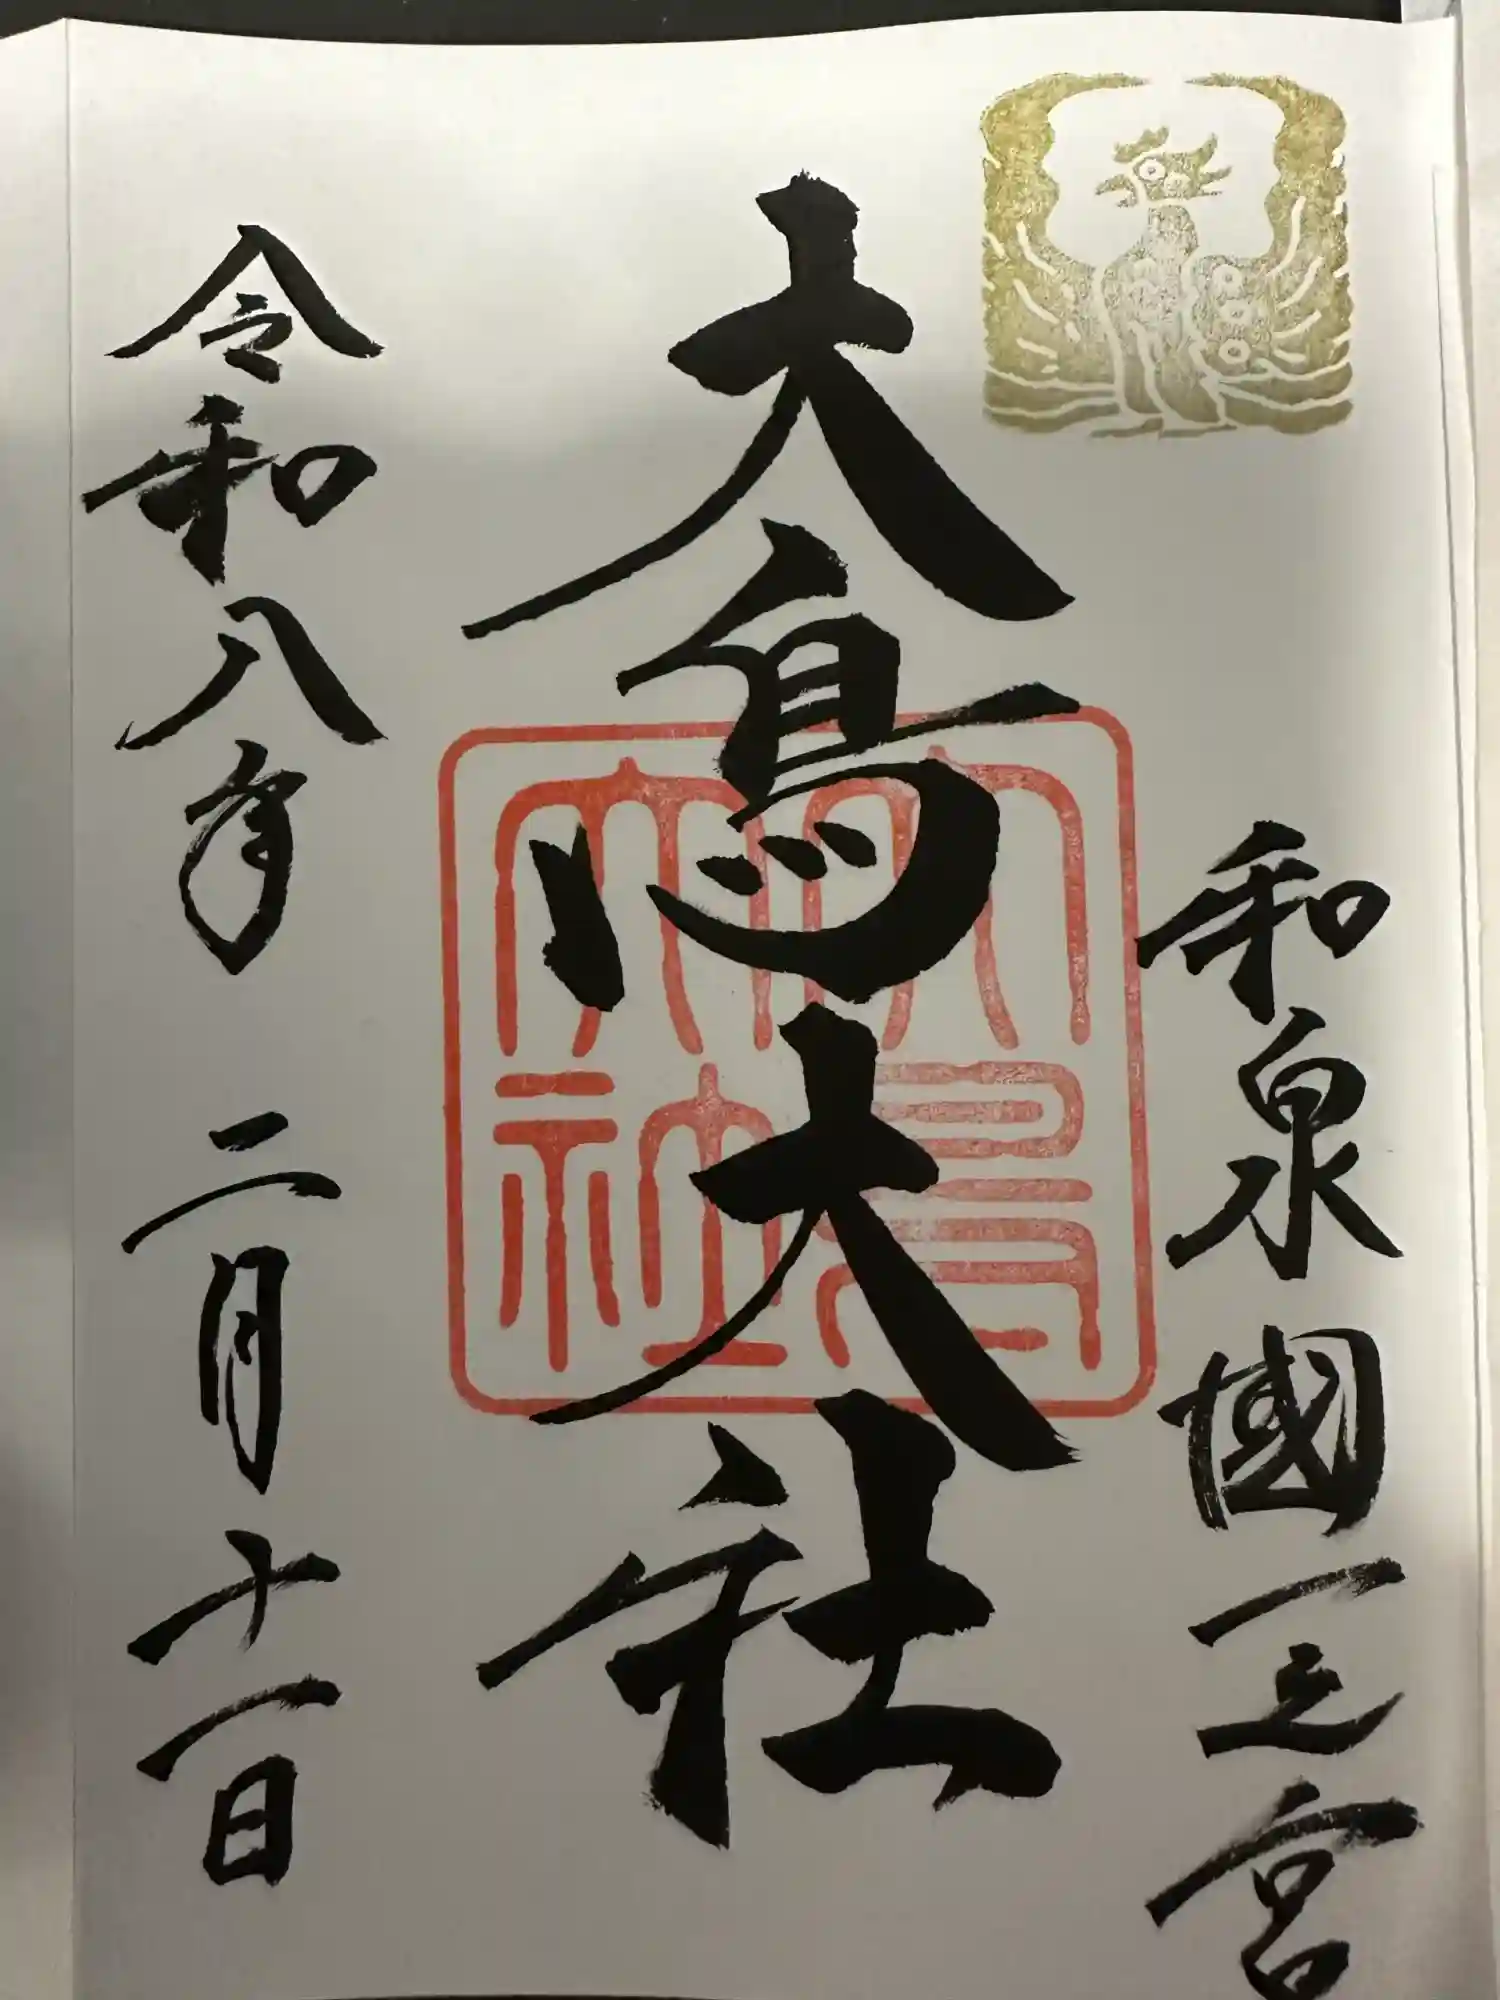 和泉國一之宮
大鳥大社
大鳥
大社
令和八年 二月十一日